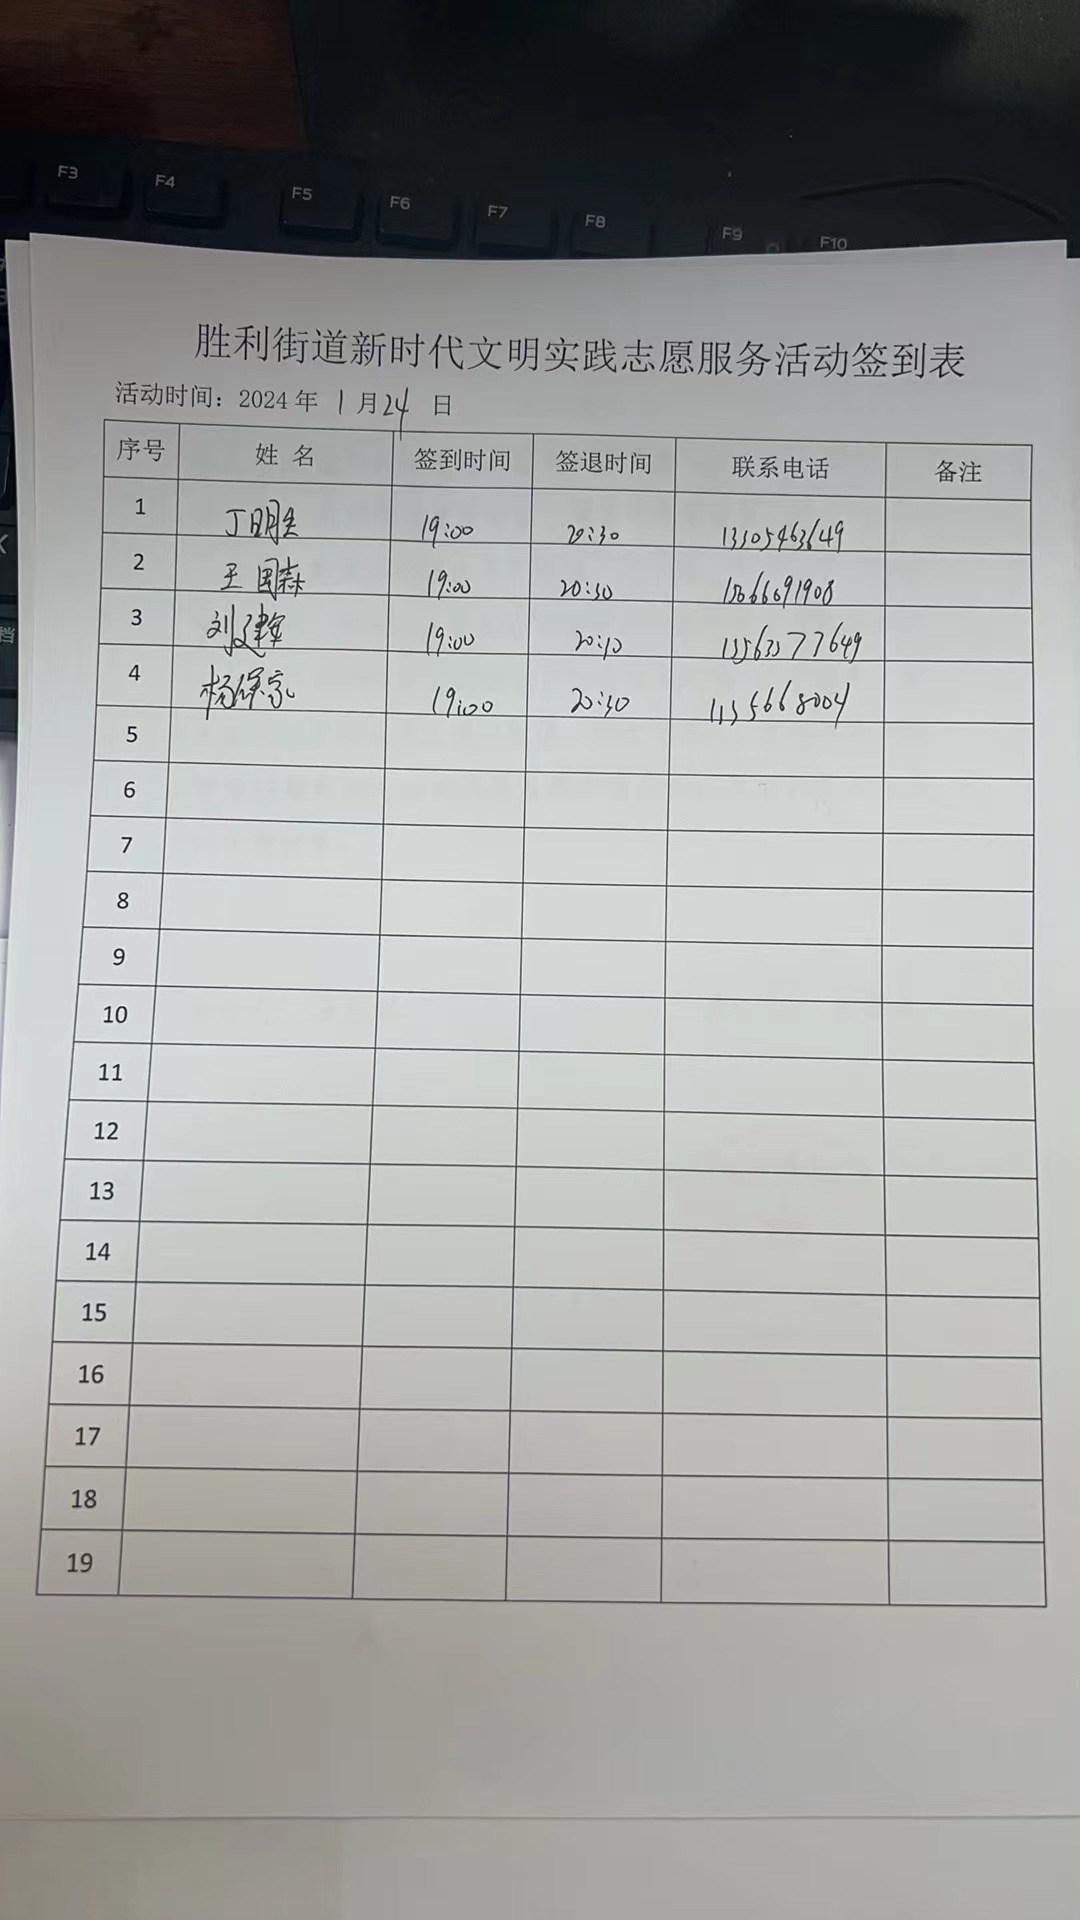 F3 F4 F5 F6 F7 F8 F9 F10
胜利街道新时代文明实践志愿服务活动签到表
活动时间：2024 年 1 月 24 日
序号 姓 名 签到时间 签退时间 联系电话 备注
1 丁明 19:00 20:30 13305463649
2 王国森 19:00 20:30 15066091908
3 刘建军 19:00 20:30 13563377649
4 杨保家 19:00 20:30
5
6
7
8
9
10
11
12
13
14
15
16
17
18
19